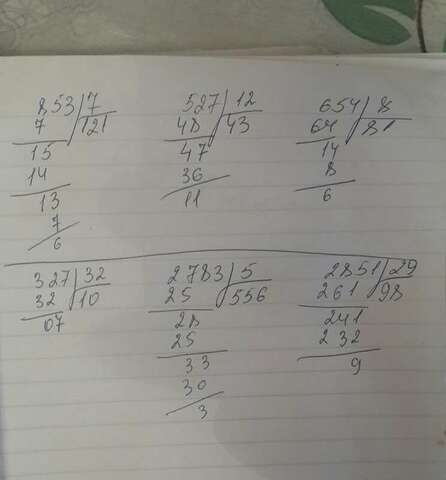 853 7
7 121
15
14
13
7
6
527 12
48 43
47
36
11
654 8
64 81
14
8
6
327 32
32 10
07
2783 5
25 556
28
25
33
30
3
2851 29
261 98
241
232
9